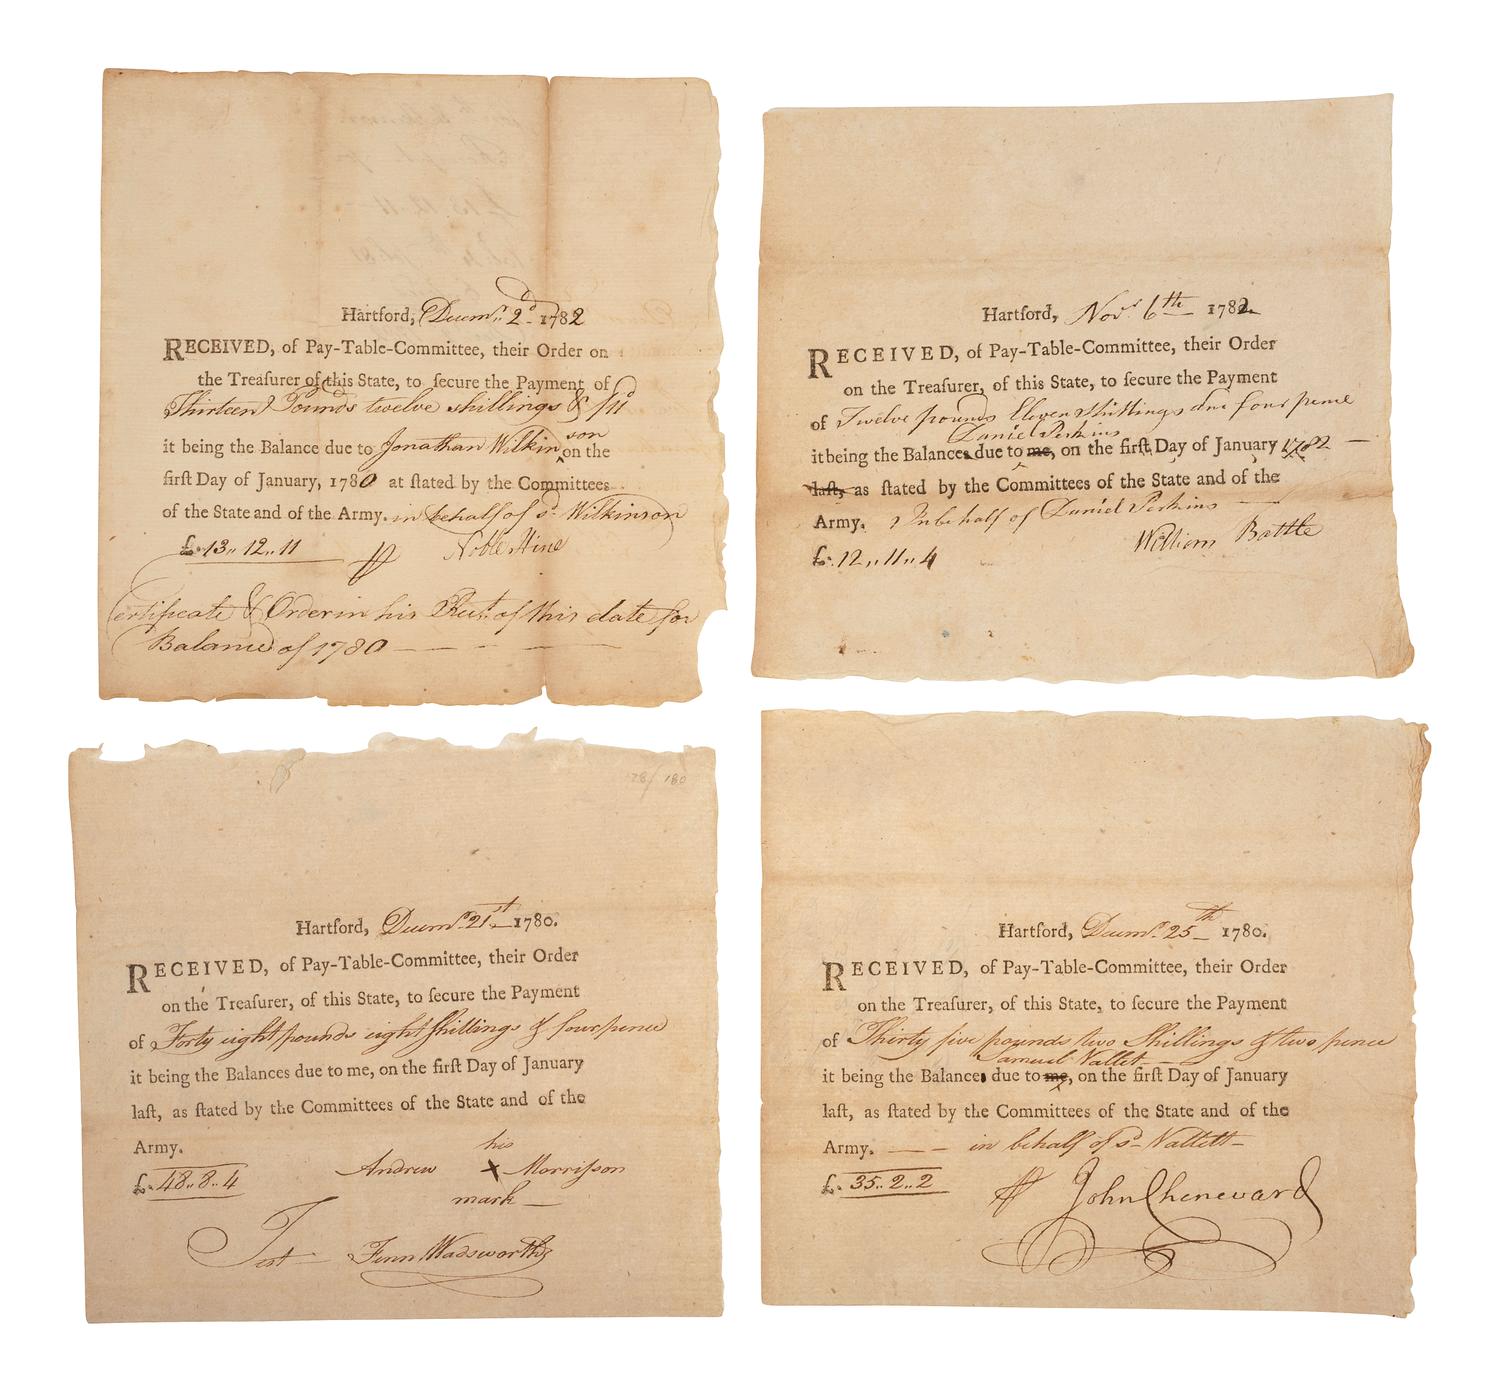 Hartford, Decemr. 2d. 1782
RECEIVED, of Pay-Table-Committee, their Order on
the Treaſurer of this State, to ſecure the Payment of
Thirteen Pounds twelve shillings & /11d
it being the Balance due to Jonathan Wilkinson on the
firſt Day of January, 1780 at ſtated by the Committees
of the State and of the Army. in behalf of sd. Wilkinson
£. 13,, 12,, 11 Noble Hine
Certificate & Order in his Rect. of this date for
Balance of 1780
Hartford, Novr. 6th 1782
RECEIVED, of Pay-Table-Committee, their Order
on the Treaſurer, of this State, to ſecure the Payment
of Twelve pounds Eleven Shillings and four pence
Daniel Perkins
it being the Balances due to me, on the firſt Day of January 1782
laſt, as ſtated by the Committees of the State and of the
Army. In behalf of Daniel Perkins
William Battle
£. 12,, 11,, 4
78/180
Hartford, Decemr. 21st 1780.
RECEIVED, of Pay-Table-Committee, their Order
on the Treaſurer, of this State, to ſecure the Payment
of Forty eight pounds eight Shillings & four pence
it being the Balances due to me, on the firſt Day of January
laſt, as ſtated by the Committees of the State and of the
Army. his
£. 48.. 8.. 4 Andrew X Morrisson
mark
Test Fenn Wadsworth
Hartford, Decemr. 25th 1780.
RECEIVED, of Pay-Table-Committee, their Order
on the Treaſurer, of this State, to ſecure the Payment
of Thirty five pounds two Shillings & two pence
Samuel Vallet
it being the Balance due to me, on the firſt Day of January
laſt, as ſtated by the Committees of the State and of the
Army. in behalf of sd. Vallett
£. 35.. 2.. 2 John Chenevard